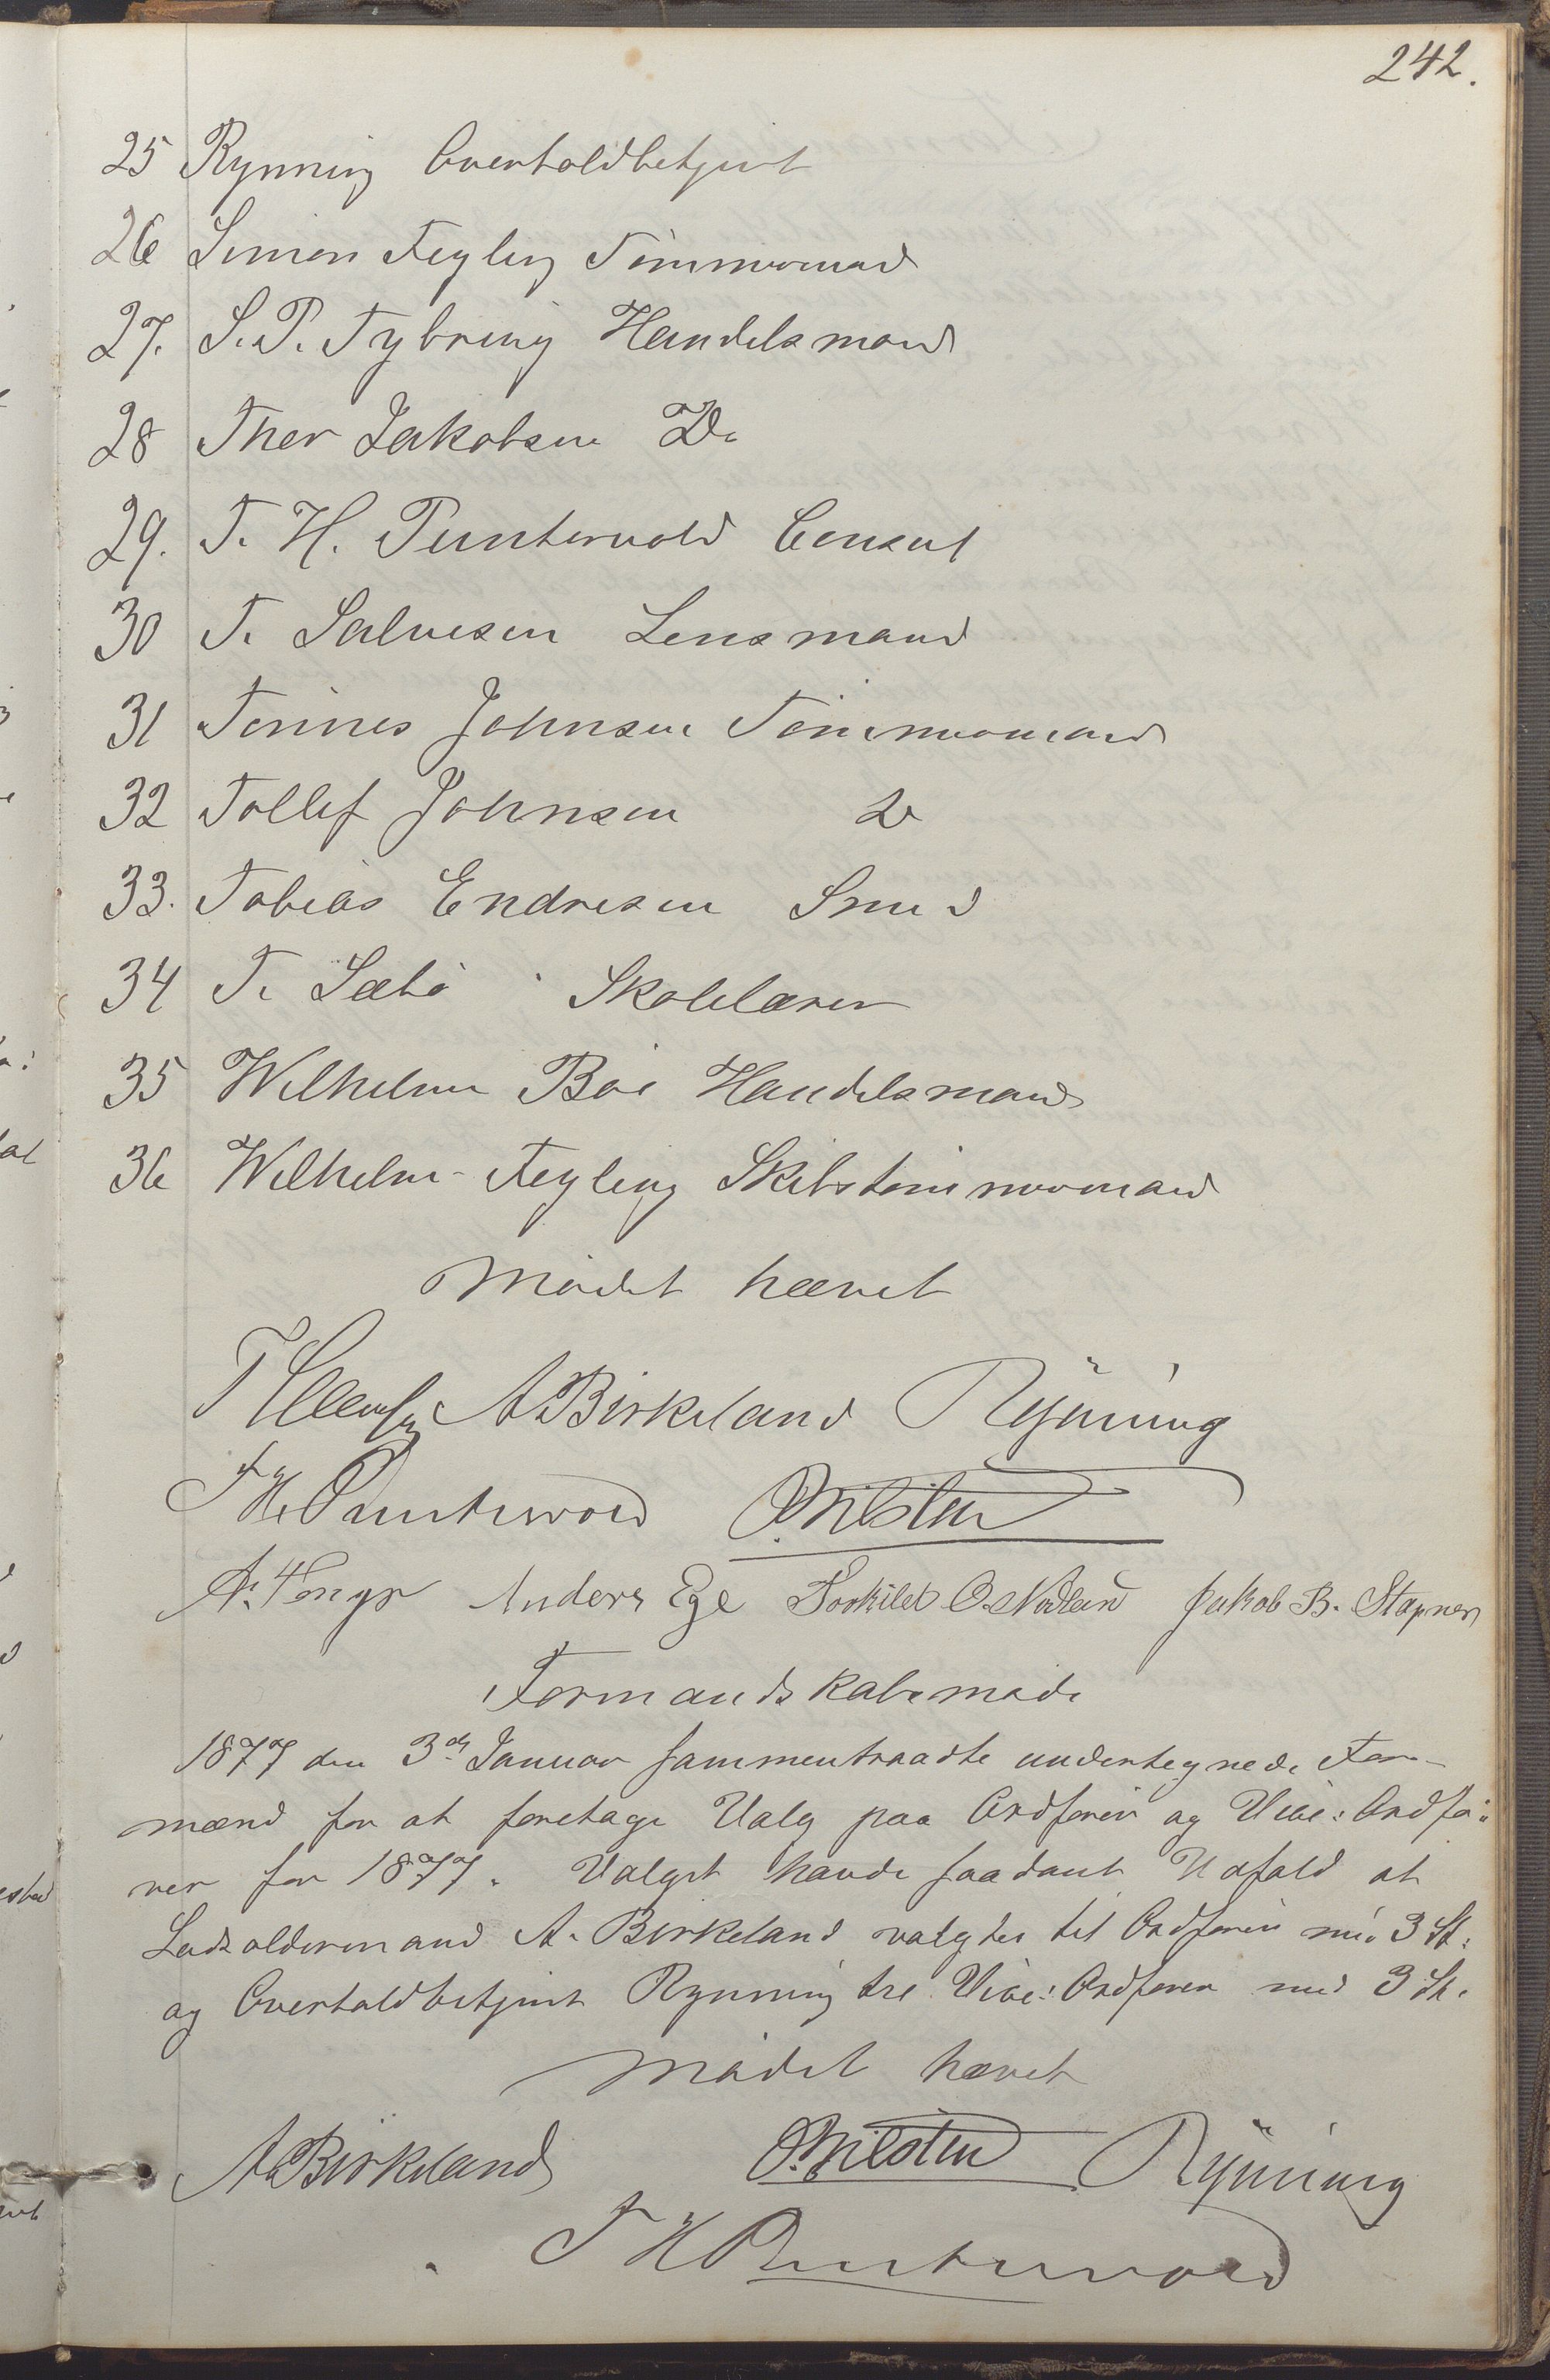 242.
25 Rynning Overtoldbetjent
26 Simon Fegling Tømmermand
27. S. P. Tybring Handelsmand
28 Thor Jakobsen Do
29. T. H. Puntervold Consul
30 T. Salvesen Lensmand
31 Tønnes Johnsen Tømmermand
32 Tollef Johnsen Do
33. Tobias Endresen Smed
34 T. Sæbø Skolelærer
35 Wilhelm Bøe Handelsmand
36 Wilhelm Fegling Skibstømmermand
Mødet hævet
A Birkeland Rynning
T H. Puntervold
Anders Ege Torkild O. Nodland Jakob B. Stapnes
Formandskabsmøde
1877 den 3die Januar sammentraadte undertegnede For-
mænd for at foretage Valg paa Ordfører og Vice: Ordfø:
rer for 1877. Valget havde saadant Udfald at
Lodsoldermand A. Birkeland valgtes til Ordfører med 3 St.
og Overtoldbetjent Rynning til Vice: Ordfører med 3 St.
Mødet hævet
A Birkeland Rynning
T H Puntervold